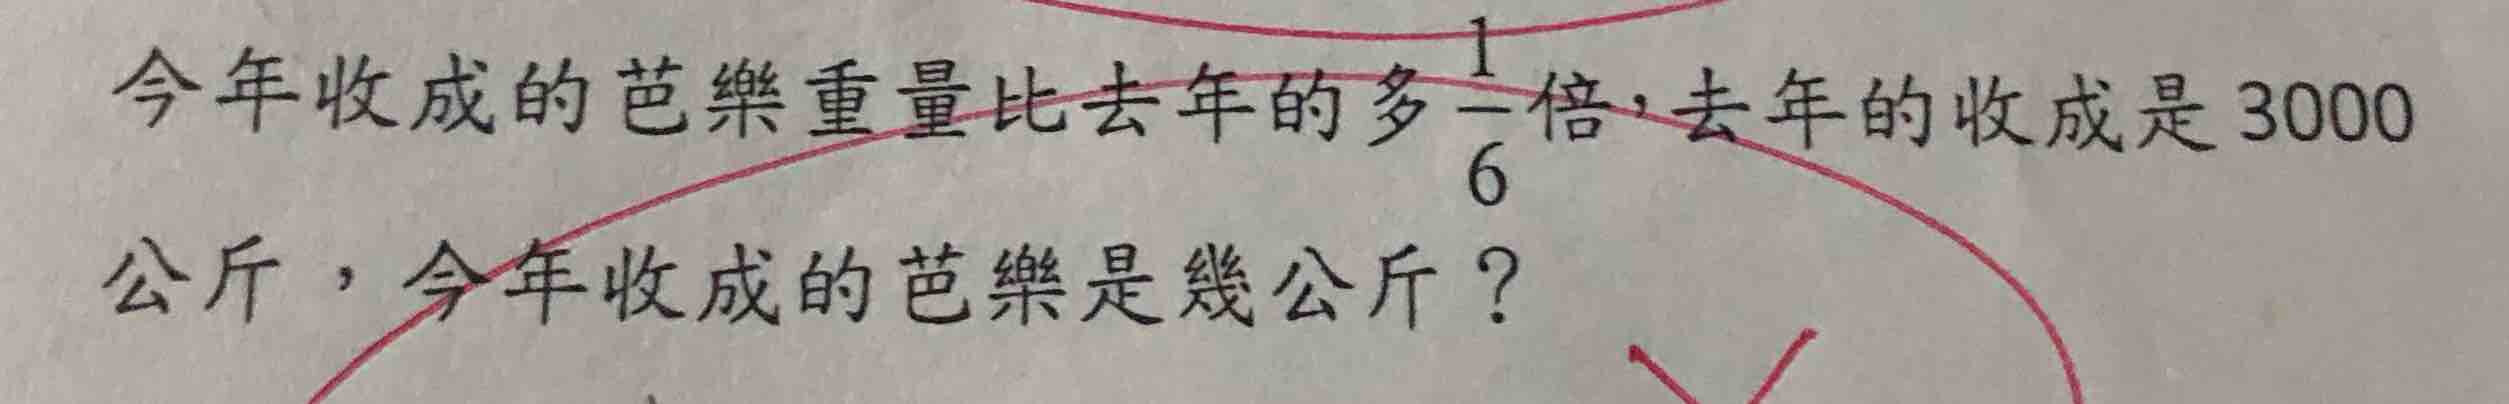 今年收成的芭樂重量比去年的多1/6倍，去年的收成是3000
公斤，今年收成的芭樂是幾公斤？